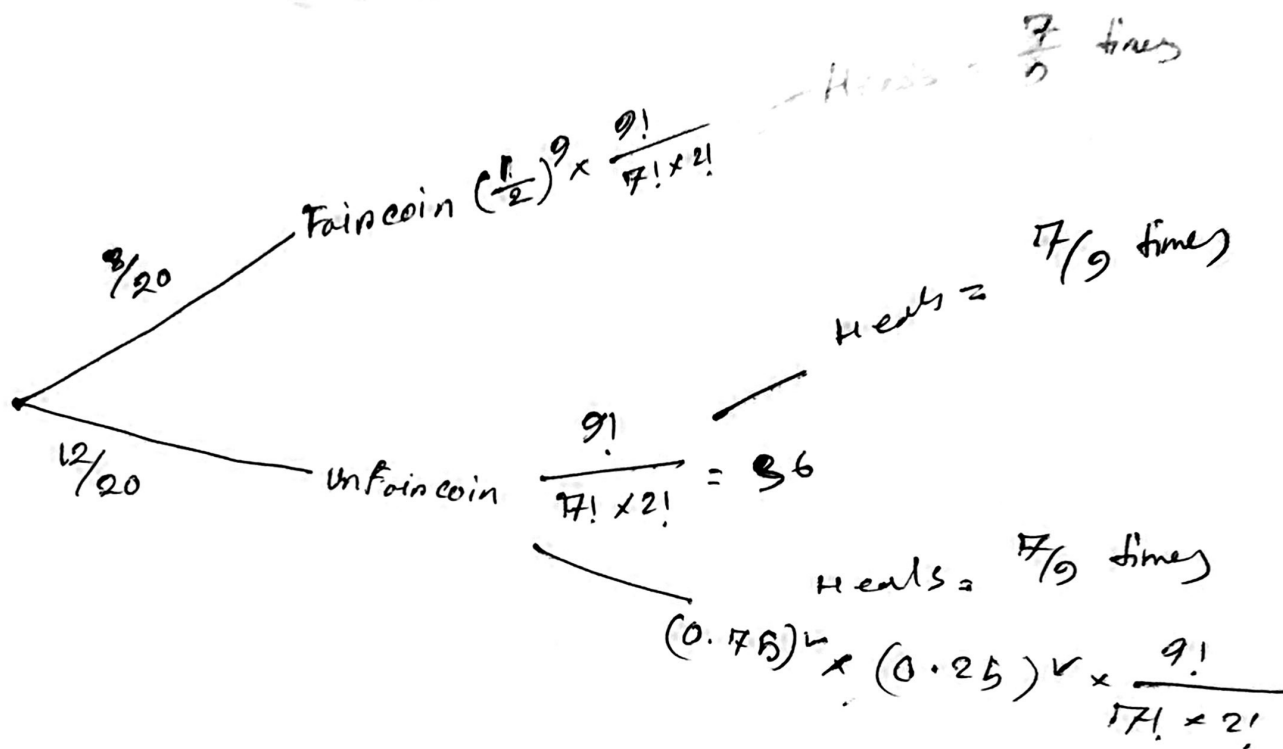 Heads = 7/9 times
Fair coin (1/2)^9 × 9!/(7! × 2!)
8/20
Heads = 7/9 times
12/20
unfair coin 9!/(7! × 2!) = 36
Heads = 7/9 times
(0.75)^✓ × (0.25)^✓ × 9!/(7! × 2!)